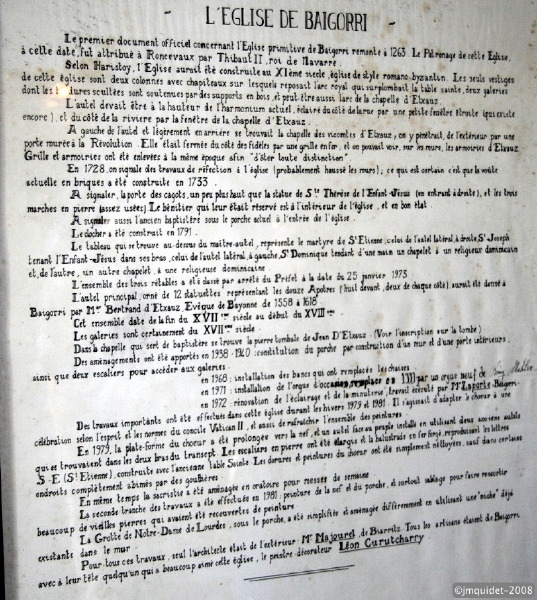 - L'EGLISE DE BAIGORRI -
Le premier document officiel concernant l'Eglise primitive de Baigorri remonte à 1263. Le Patronage de cette Eglise,
à cette date, fut attribué à Roncevaux par Thibaut II, roi de Navarre.
Selon Haristoy, l'Eglise aurait été construite au XIème siècle, église de style romano-byzantin. Les seuls vestiges
de cette église sont deux colonnes avec chapiteaux sur lesquels reposait l'arc royal qui surplombait la table sainte, deux galeries
dont les dures sont soutenues par des supports en bois, et peut-être aussi l'arc de la chapelle d'Etxauz.
L'autel devait être à la hauteur de l'harmonium actuel, éclairé du côté de la rue par une petite fenêtre étroite (qui existe
encore), et du côté de la rivière par la fenêtre de la chapelle d'Etxauz.
A gauche de l'autel et légèrement en arrière se trouvait la chapelle des vicomtes d'Etxauz, on y pénétrait de l'extérieur par une
porte murée à la Révolution. Elle était fermée du côté des fidèles par une grille en fer, et on pouvait voir, sur les murs, les armoiries d'Etxauz.
Grille et armoiries ont été enlevées à la même époque afin "d'ôter toute distinction".
En 1728, on signale des travaux de réfection à l'église (probablement haussé les murs); ce qui est certain c'est que la voûte
actuelle en briques a été construite en 1733.
A signaler, la porte des cagots, un peu plus haut que la statue de Ste Thérèse de l'Enfant-Jésus (en entrant à droite), et les trois
marches en pierre (assez usées). Le bénitier qui leur était réservé est à l'intérieur de l'église, et en bon état.
A signaler aussi l'ancien baptistère sous le porche actuel à l'entrée de l'église.
Le clocher a été construit en 1791.
Le tableau qui se trouve au-dessus du maître-autel, représente le martyre de St Etienne, celui de l'autel latéral, à droite, St Joseph
tenant l'Enfant-Jésus dans ses bras, celui de l'autel latéral, à gauche, St Dominique tendant d'une main un chapelet à un religieux dominicain
et, de l'autre, un autre chapelet, à une religieuse dominicaine.
L'ensemble des trois retables a été classé par arrêté du Préfet à la date du 25 janvier 1973
L'autel principal, orné de 12 statuettes représentant les douze Apôtres (huit devant, deux de chaque côté) aurait été donné à
Baigorri par Mgr Bertrand d'Etxauz, Evêque de Bayonne de 1558 à 1618.
Cet ensemble date de la fin du XVIIème siècle au début du XVIIIème.
Les galeries sont certainement du XVIIème siècle.
Dans la chapelle qui sert de baptistère se trouve la pierre tombale de Jean D'Etxauz. (Voir l'inscription sur la tombe).
Des aménagements ont été apportés en 1938-1940: constitution du porche par construction d'un mur et d'une porte intérieurs,
ainsi que deux escaliers pour accéder aux galeries.
en 1968: installation des bancs qui ont remplacé les chaises.
en 1971: installation de l'orgue d'occasion, remplacé en par un orgue neuf de
en 1972: rénovation de l'éclairage et de la minuterie, travail exécuté par Mr Laporte-Baigorri.
Des travaux importants ont été effectués dans cette église durant les hivers 1979 et 1981. Il s'agissait d'adapter le chœur à une
célébration selon l'esprit et les normes du concile Vatican II, et aussi de rafraîchir l'ensemble des peintures.
En 1979, la plate-forme du chœur a été prolongée vers la nef, et un autel face au peuple installé en utilisant deux anciens autels
qui se trouvaient dans les deux bras du transept. Les escaliers en pierre ont été élargis et la balustrade en fer forgé, reproduisant les lettres
S-E (St Etienne), construite avec l'ancienne table Sainte. Les dorures et peintures du chœur ont été simplement nettoyées, sauf dans certains
endroits complètement abîmés par des gouttières.
En même temps la sacristie a été aménagée en oratoire pour messes de semaine
La seconde tranche des travaux a été effectuée en 1981: peinture de la nef et du porche, et surtout sablage pour faire ressortir
beaucoup de vieilles pierres qui avaient été recouvertes de peinture.
La Grotte de Notre-Dame de Lourdes, sous le porche, a été simplifiée et aménagée différemment en utilisant une "niche" déjà
existante dans le mur.
Pour tous ces travaux, seul l'architecte était de l'extérieur: Mr Majourel, de Biarritz. Tous les artisans étaient de Baigorri
avec à leur tête quelqu'un qui a beaucoup aimé cette église, le peintre-décorateur Léon Curutcharry.
©jmquidet-2008